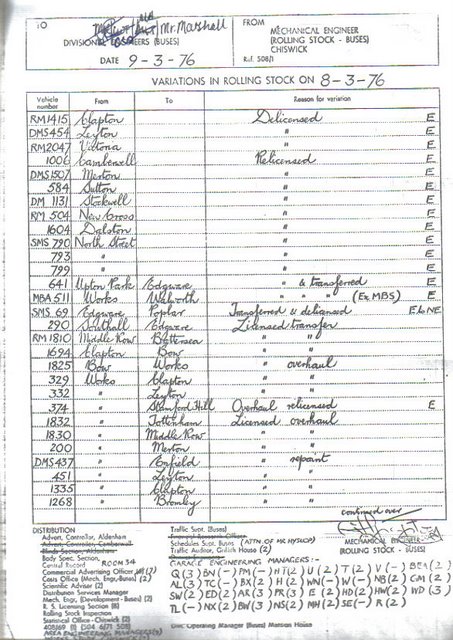 TO
Mr. Marshall
DIVISIONAL ENGINEERS (BUSES)
DATE 9-3-76
FROM
MECHANICAL ENGINEER
(ROLLING STOCK - BUSES)
CHISWICK
Ref. 508/1
VARIATIONS IN ROLLING STOCK ON 8-3-76
Vehicle number From To Reason for variation
RM1415 Clapton Delicensed E
DMS454 Leyton " E
RM2047 Victoria " E
1006 Camberwell Relicensed E
DMS1507 Merton " E
584 Sutton " E
DM 1131 Stockwell " E
RM 504 New Cross " E
1604 Dalston " E
SMS 790 North Street " E
793 " " E
799 " " E
641 Upton Park Edgware " & transferred E
MBA 511 Works Walworth " " " (Ex MBS) E
SMS 69 Edgware Poplar Transferred & delicensed E to NE
290 Southall Edgware Licensed transfer
RM1810 Middle Row Battersea " "
1694 Clapton Bow " "
1825 Bow Works " overhaul
329 Works Clapton " "
332 " Leyton " "
374 " Stamford Hill Overhaul relicensed E
1832 " Tottenham Licensed overhaul
1830 " Middle Row " "
200 " Merton " "
DMS437 " Enfield " repaint
451 " Leyton " "
1335 " Clapton " "
1268 " Bromley " "
continued over
MECHANICAL ENGINEER
(ROLLING STOCK - BUSES)
DISTRIBUTION
Advert. Controller, Aldenham
Advert. Controller, Camberwell
Body Spec. Section,
Central Record ROOM 34
Commercial Advertising Officer
Costs Office (Mech. Engr.-Buses) (2)
Scientific Adviser (2)
Distribution Services Manager
Mech. Engr. (Development - Buses)
R. S. Licensing Section (8)
Statistical Office - Chiswick
AREA ENGINEERING MANAGERS(9)
Traffic Supt. (Buses)
Schedules Supt. Buses (ATTN OF MR HYSLOP)
Traffic Auditor, Griffith House (2)
GARAGE ENGINEERING MANAGERS:-
Q(3) BN(-) PM(-) HT(2) U(2) T(2) V(-) BEA(2)
AL(3) TC(-) BX(2) H(2) WN(-) W(-) NB(2) GM(2)
SW(2) ED(2) AR(3) PR(3) E(2) HD(2) HW(2) WD(3)
TL(-) NX(2) BW(3) NS(2) MH(2) SE(-) R(2)
Engineering Manager (Buses) Manson House